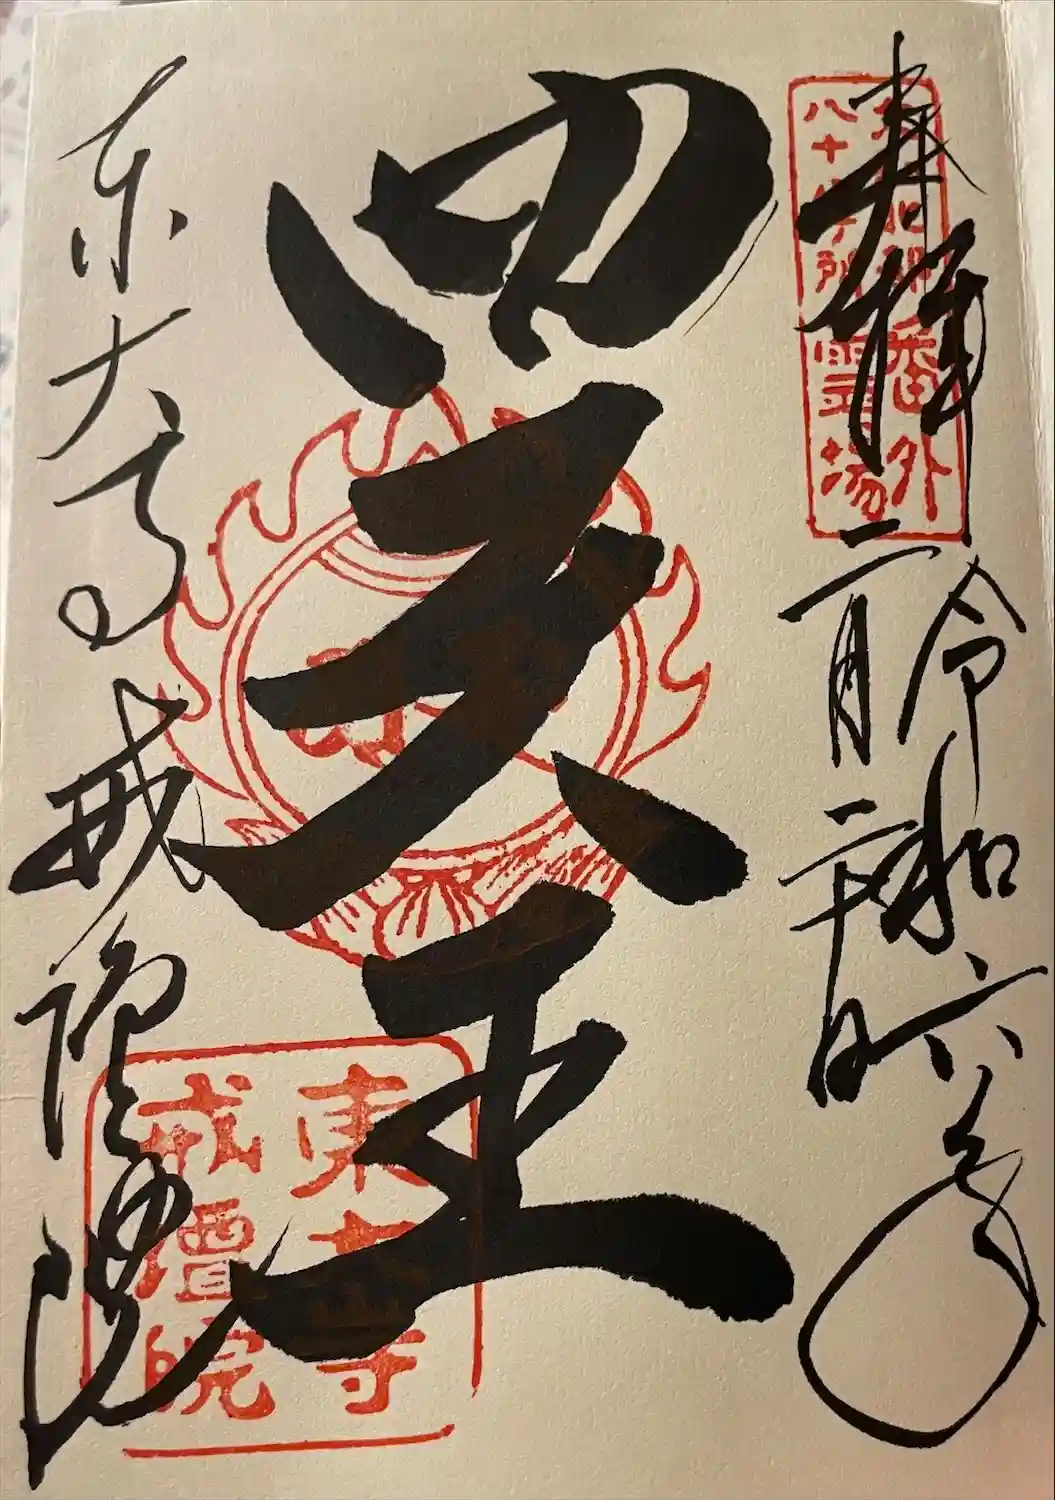 奉拝
令和六年
二月二十日
大和北部番外
八十八ヶ所霊場
四天王
東大寺戒壇院
東大寺
戒壇院